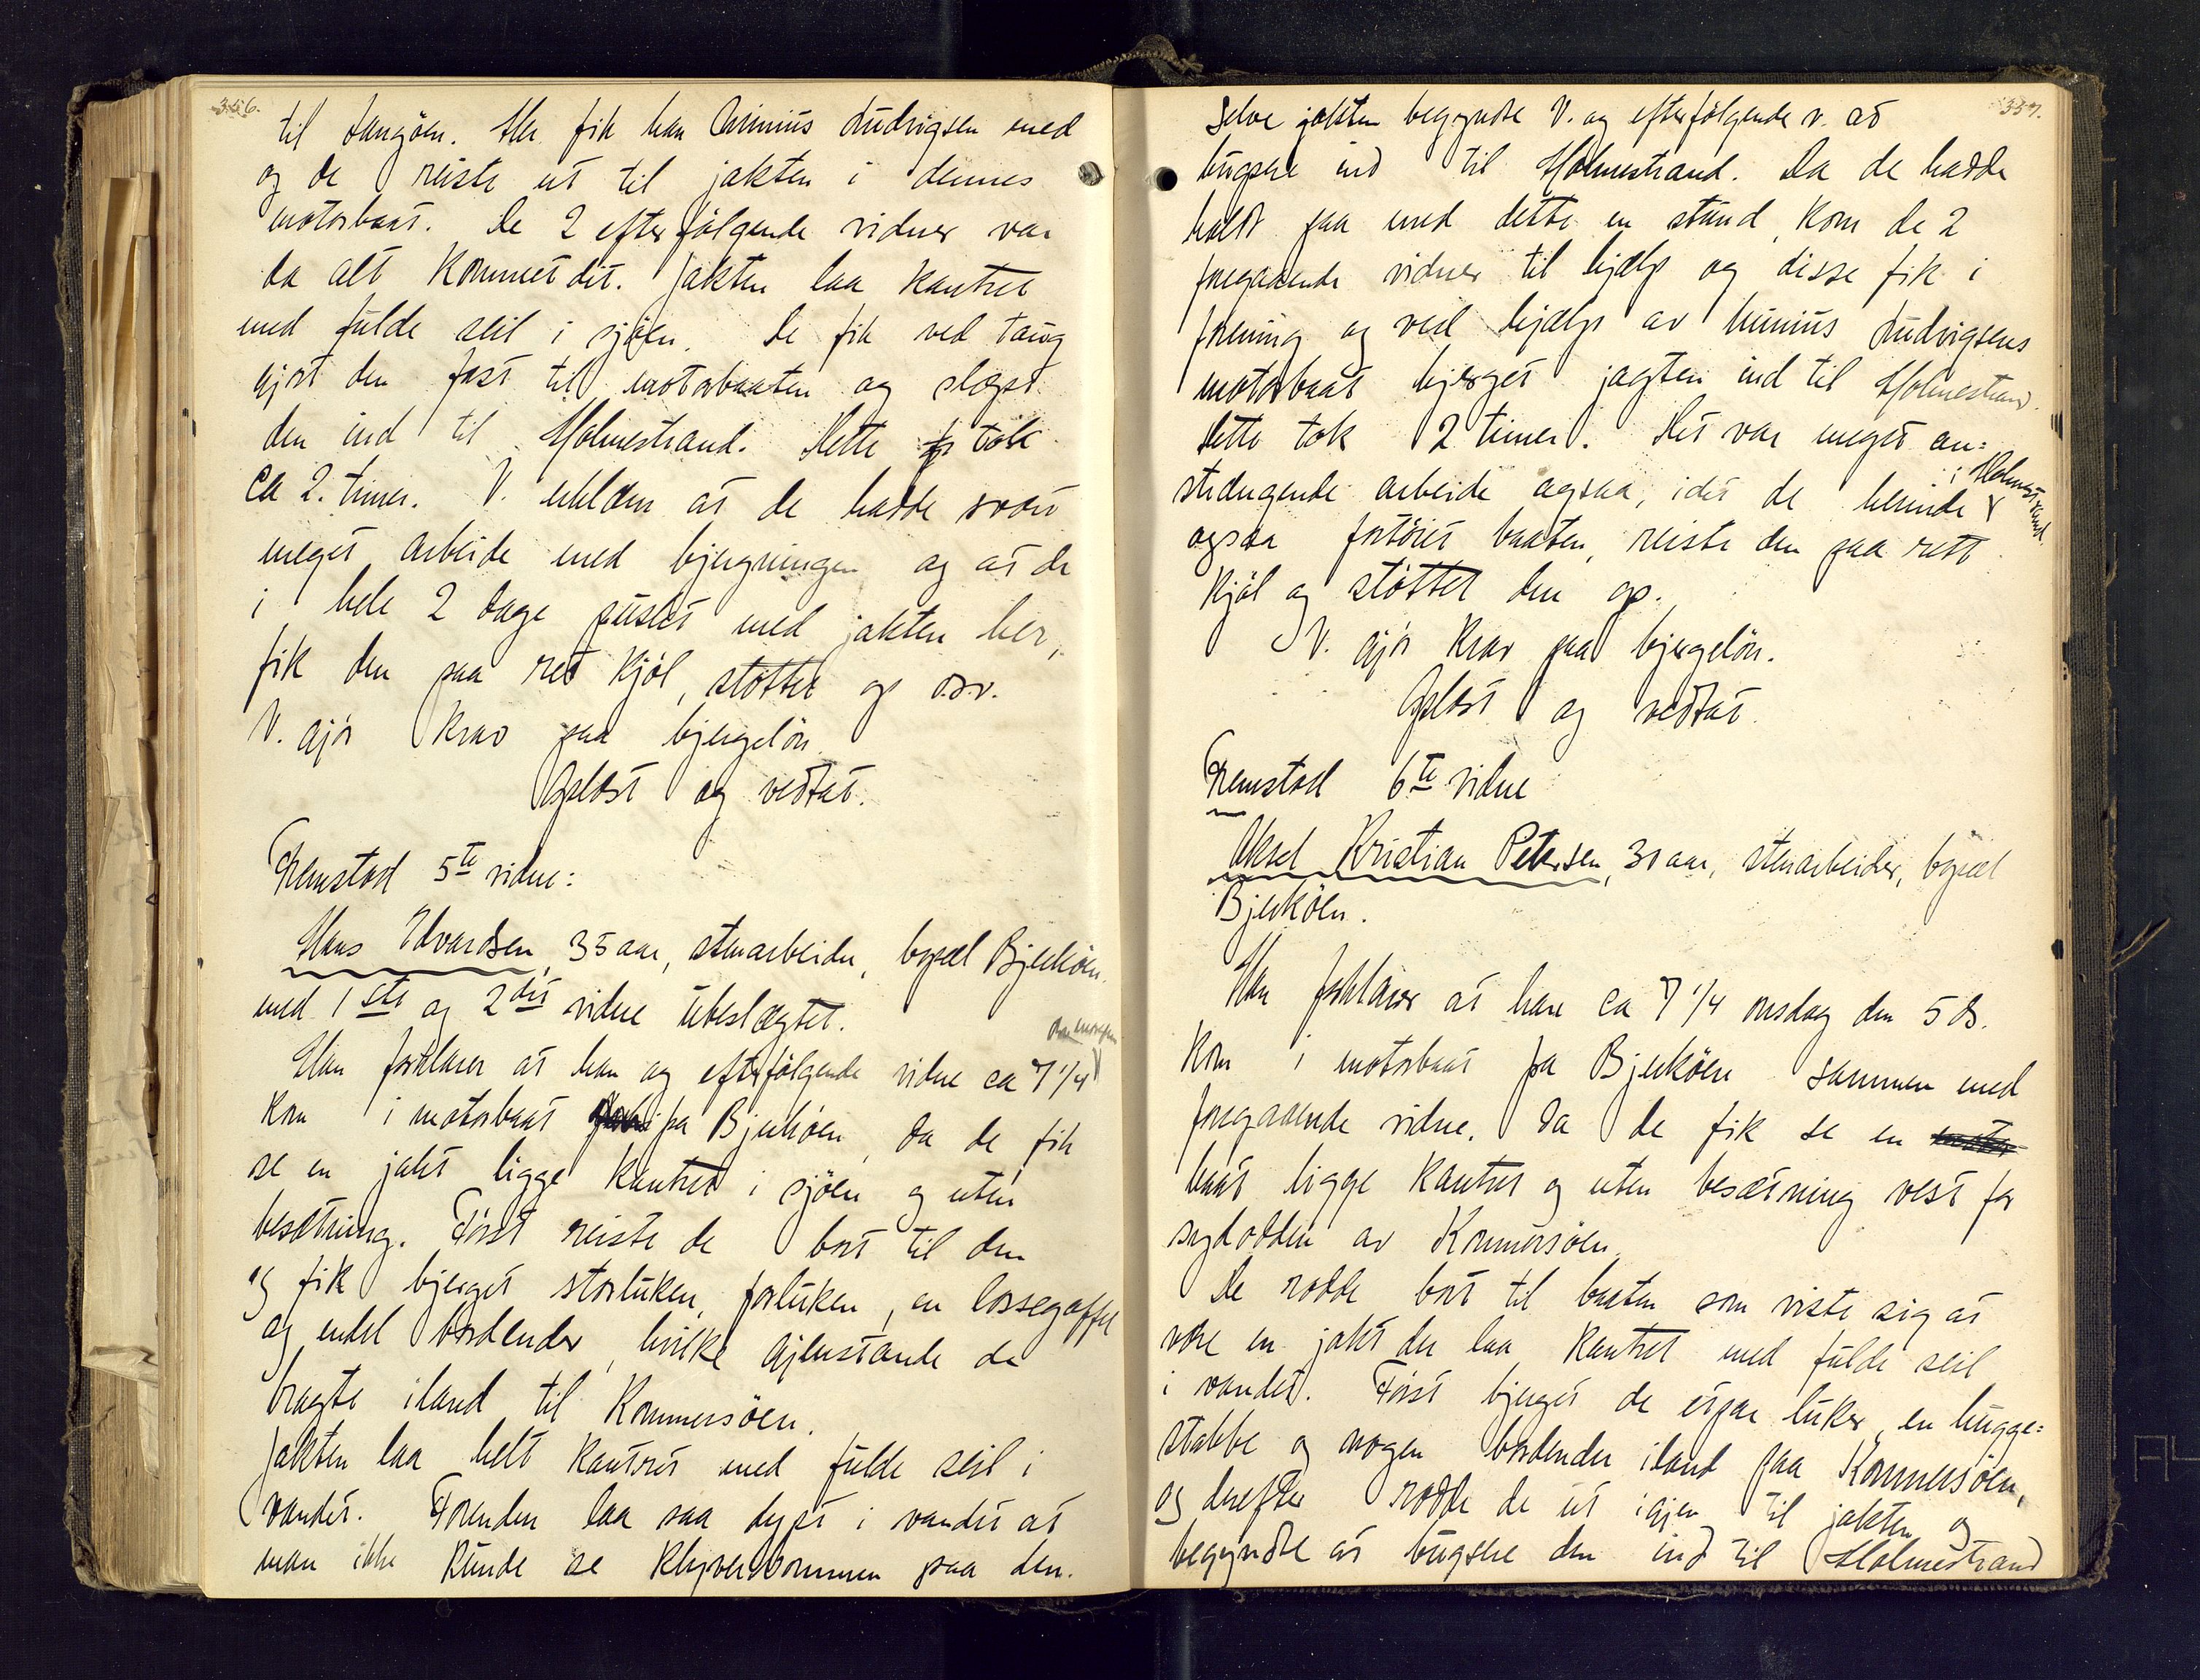 356.
til Langöen. Her fik han Hinius Ludvigsen med
og de reiste ut til jakten i dennes
motorbaat. De 2 efterfølgende vidner var
da alt kommet dit. Jakten laa kantret
med fulde seil i sjøen. De fik ved taug
gjort den fast til motorbaaten og slæpt
den ind til Holmestrand. Dette tok
ca 2. timer. V. erklærer at de hadde svært
meget arbeide med bjergningen og at de
i hele 2 dage puslet med jakten her,
fik den paa ret kjøl, støttet op o.s.v.
V. gjør krav paa bjergeløn.
Oplæst og vedtat.
Fremstod 5te vidne:
Hans Edvardsen, 35 aar, stenarbeider, bopæl Bjerkøen
med 1ste og 2det vidne ubeslægtet.
Han forklarer at han og efterfølgende vidne ca 7 1/4
om morgen
kom i motorbaat fra Bjerkøen, da de fik
se en jakt ligge kantret i sjøen og uten
besætning. Først reiste de bort til den
og fik bjerget storluken, forluken, en lossegaffel
og endel bordender, hvilke gjenstande de
bragte iland til Kommersöen.
Jakten laa helt kantret med fulde seil i
vandet. Forenden laa saa dypt i vandet at
man ikke kunde se klyverbommen paa den.
357.
Selve jakten begyndte V. og efterfølgende v. at
bugsere ind til Holmestrand. Da de hadde
holdt paa med dette en stund, kom de 2
foregaaende vidner til hjælp og disse fik i
forening og ved hjælp av Hinius Ludvigsens
motorbaat bjerget jagten ind til Holmestrand.
Dette tok 2 timer. Det var meget an=
strengende arbeide ogsaa, idet de herinde
i Holmestrand
ogsaa fortøiet baaten, reiste den paa rett
kjøl og støttet den op.
V. gjør krav paa bjergeløn.
Oplæst og vedtat.
Fremstod 6te vidne
Aksel Kristian Petersen, 31 aar, stenarbeider, bopæl
Bjerkøen.
Han forklarer at han ca 7 1/4 onsdag den 5 ds.
kom i motorbaat fra Bjerköen sammen med
foregaaende vidne. Da de fik se en motor
baat ligge kantret og uten besætning vest for
sydodden av Kommersöen.
De rodde bort til baaten som viste sig at
være en jakt der laa kantret med fulde seil
i vandet. Først bjerget de et par luker, en hugge=
stabbe og nogen bordender iland paa Kommersöen,
og derefter rodde de ut igjen til jakten og
begyndte at bugsere den ind til Holmestrand